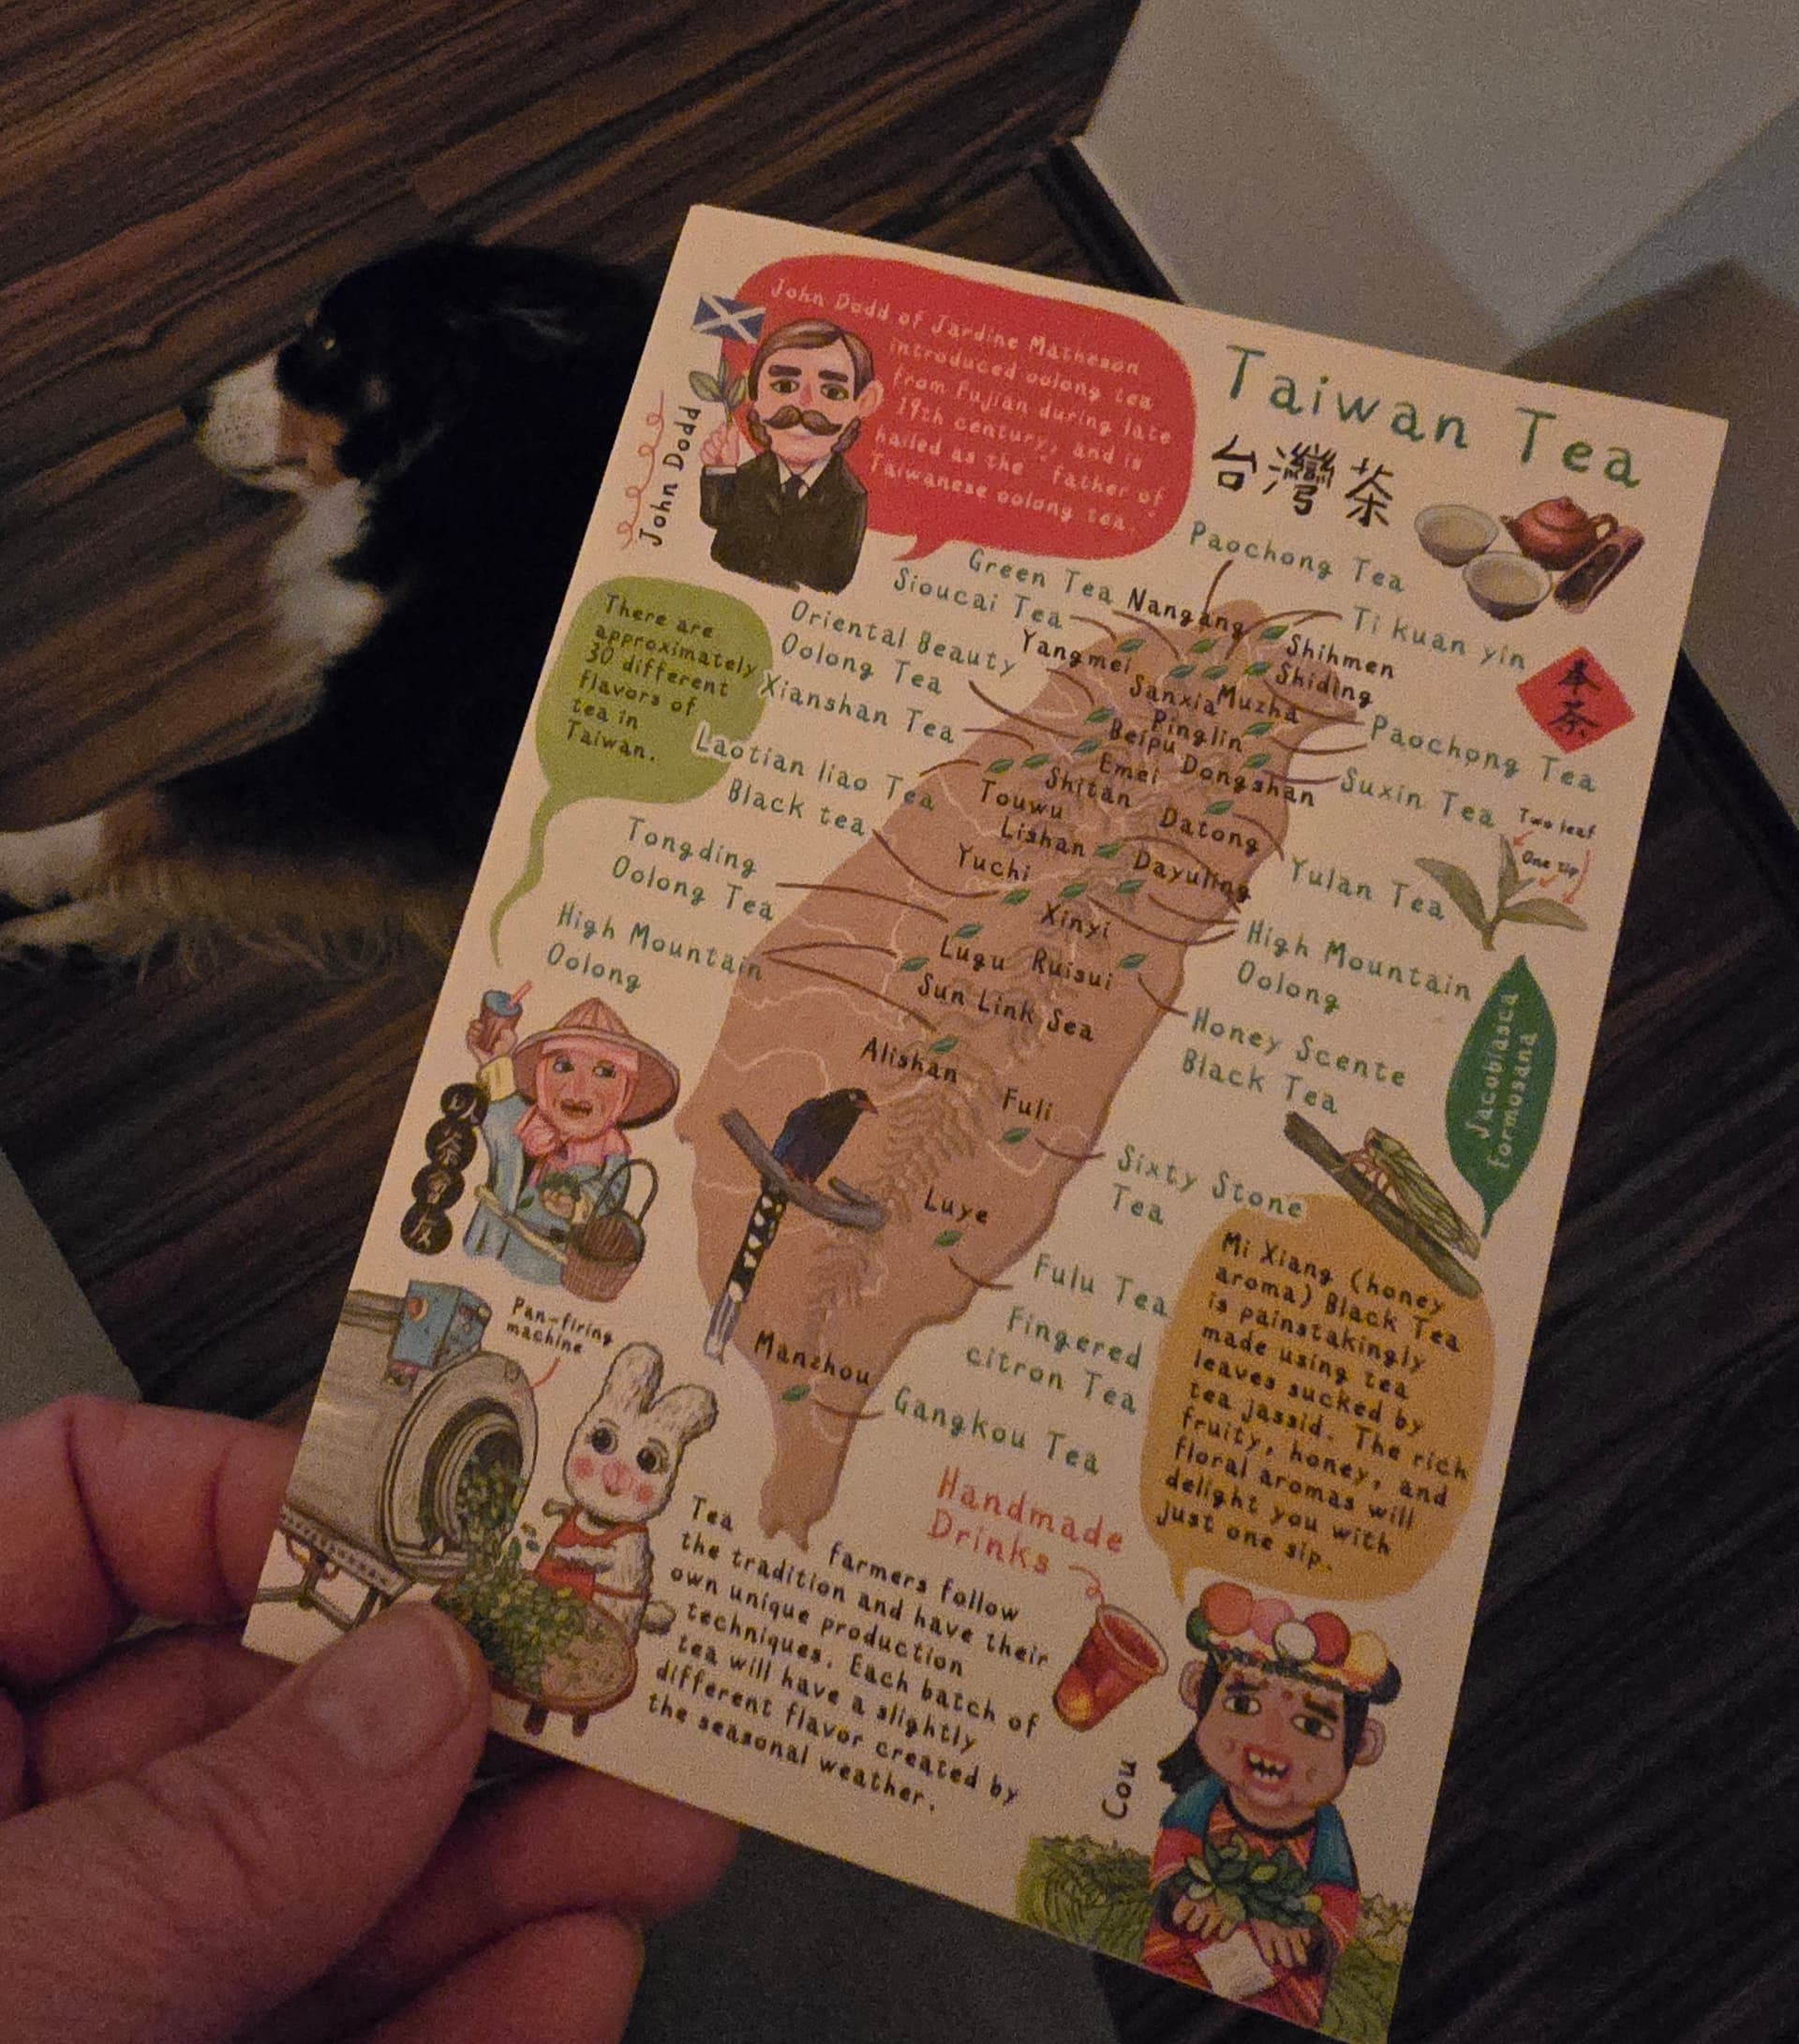 John Dodd of Jardine Matheson
introduced oolong tea
from Fujian during late
19th century, and is
hailed as the "father of
Taiwanese oolong tea."
John Dodd
Taiwan Tea
台灣茶
奉茶
There are
approximately
30 different
flavors of
tea in
Taiwan.
Green Tea
Sioucai Tea
Oriental Beauty
Oolong Tea
Xianshan Tea
Laotian liao Tea
Black tea
Tongding
Oolong Tea
High Mountain
Oolong
Paochong Tea
Ti kuan yin
Paochong Tea
Suxin Tea
Yulan Tea
High Mountain
Oolong
Honey Scente
Black Tea
Sixty Stone
Tea
Fulu Tea
Fingered
citron Tea
Gangkou Tea
Nangang
Yangmei
Shihmen
Shiding
Sanxia
Muzha
Pinglin
Beipu
Emei
Dongshan
Shitan
Touwu
Datong
Lishan
Dayuling
Yuchi
Xinyi
Lugu
Ruisui
Sun Link Sea
Alishan
Fuli
Luye
Manzhou
Two leaf
One tip
Jacobiasca
formosana
以茶會友
Pan-firing
machine
Mi Xiang (honey
aroma) Black Tea
is painstakingly
made using tea
leaves sucked by
tea jassid. The rich
fruity, honey, and
floral aromas will
delight you with
just one sip.
Handmade
Drinks
Tea farmers follow
the tradition and have their
own unique production
techniques. Each batch of
tea will have a slightly
different flavor created by
the seasonal weather.
Cou